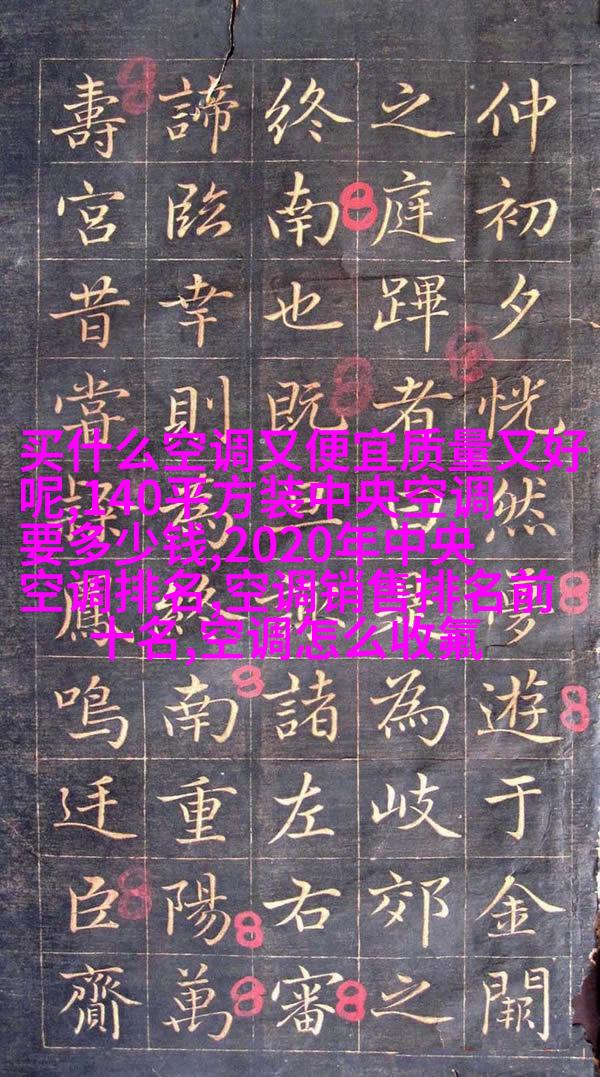 仲初夕恍然遊于金闕
之庭蹕者為岐郊之
終南也既諸左右審
諦臨幸則終南重陽萬
壽宮昔嘗鳴迁臣齎
买什么空调又便宜质量又好
呢,140平方装中央空调
要多少钱,2020年中央
空调排名,空调销售排名前
十名,空调怎么收氟